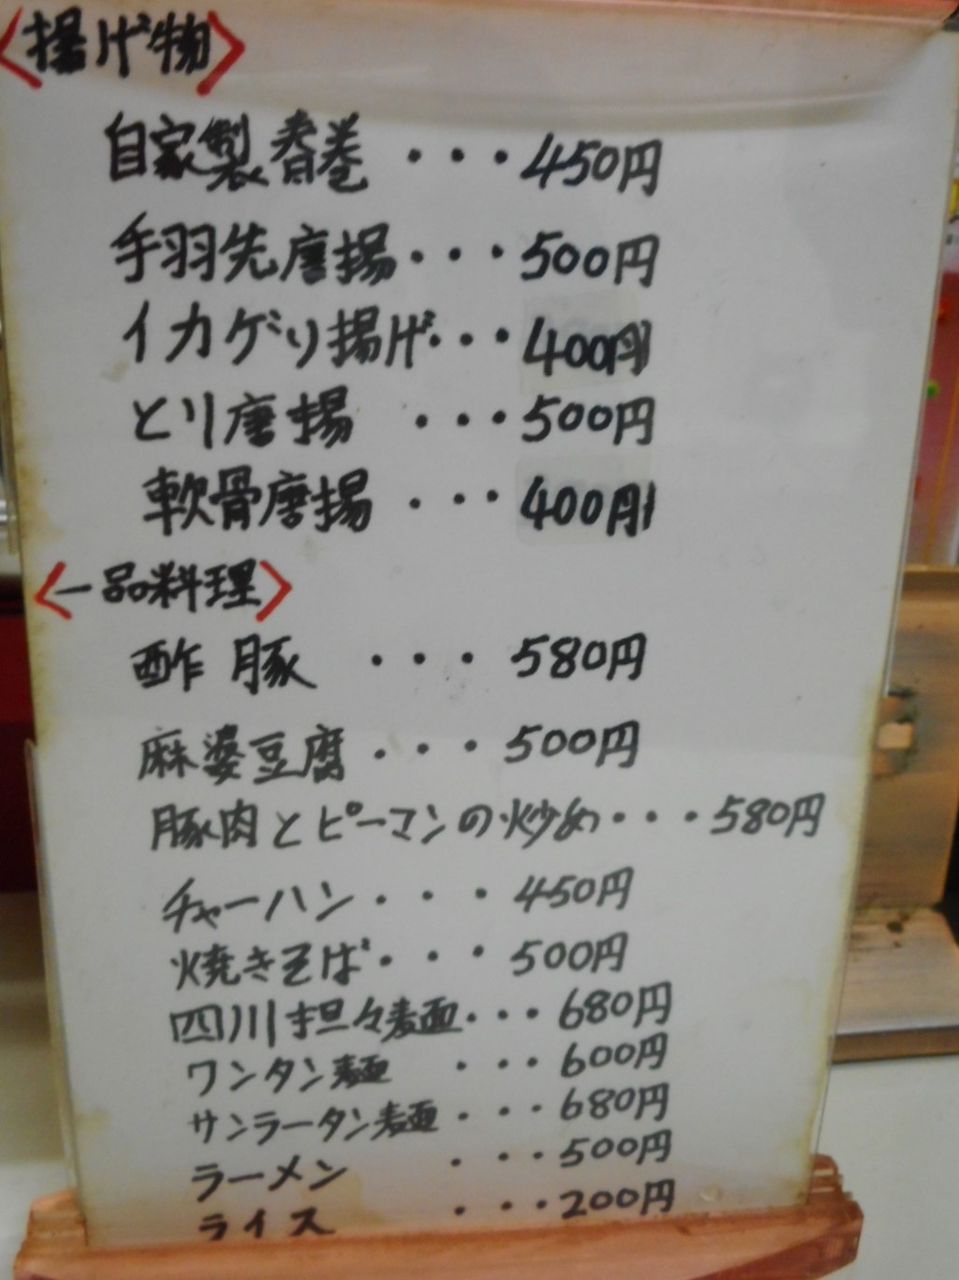 〈揚げ物〉
自家製春巻・・・450円
手羽先唐揚・・・500円
イカゲソ揚げ・・・400円
とり唐揚・・・500円
軟骨唐揚・・・400円
〈一品料理〉
酢豚・・・580円
麻婆豆腐・・・500円
豚肉とピーマンの炒め・・・580円
チャーハン・・・450円
焼きそば・・・500円
四川担々麺・・・680円
ワンタン麺・・・600円
サンラータン麺・・・680円
ラーメン・・・500円
ライス・・・200円